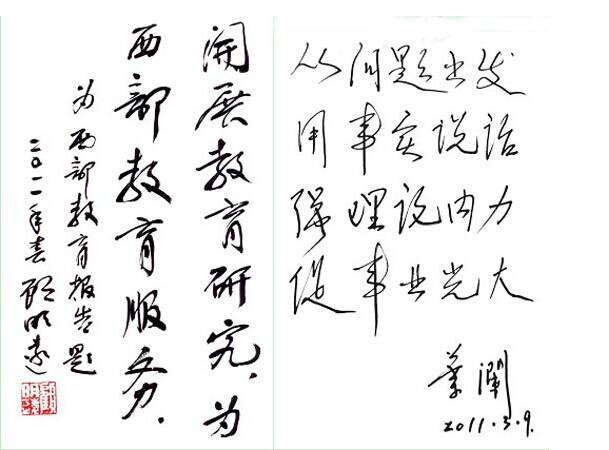 開展教育研究,为
西部教育服务.
为西部教育报告题
二〇一一年春 顾明远
顧明遠
从问题出发
用事实说话
强理论内力
促事业光大
葉澜
2011.3.9.